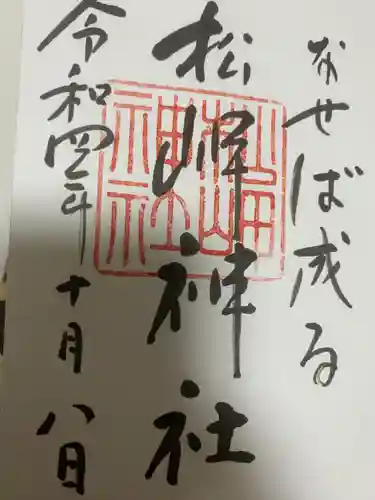 なせば成る
松岬神社
令和四年十月八日
松岬神社